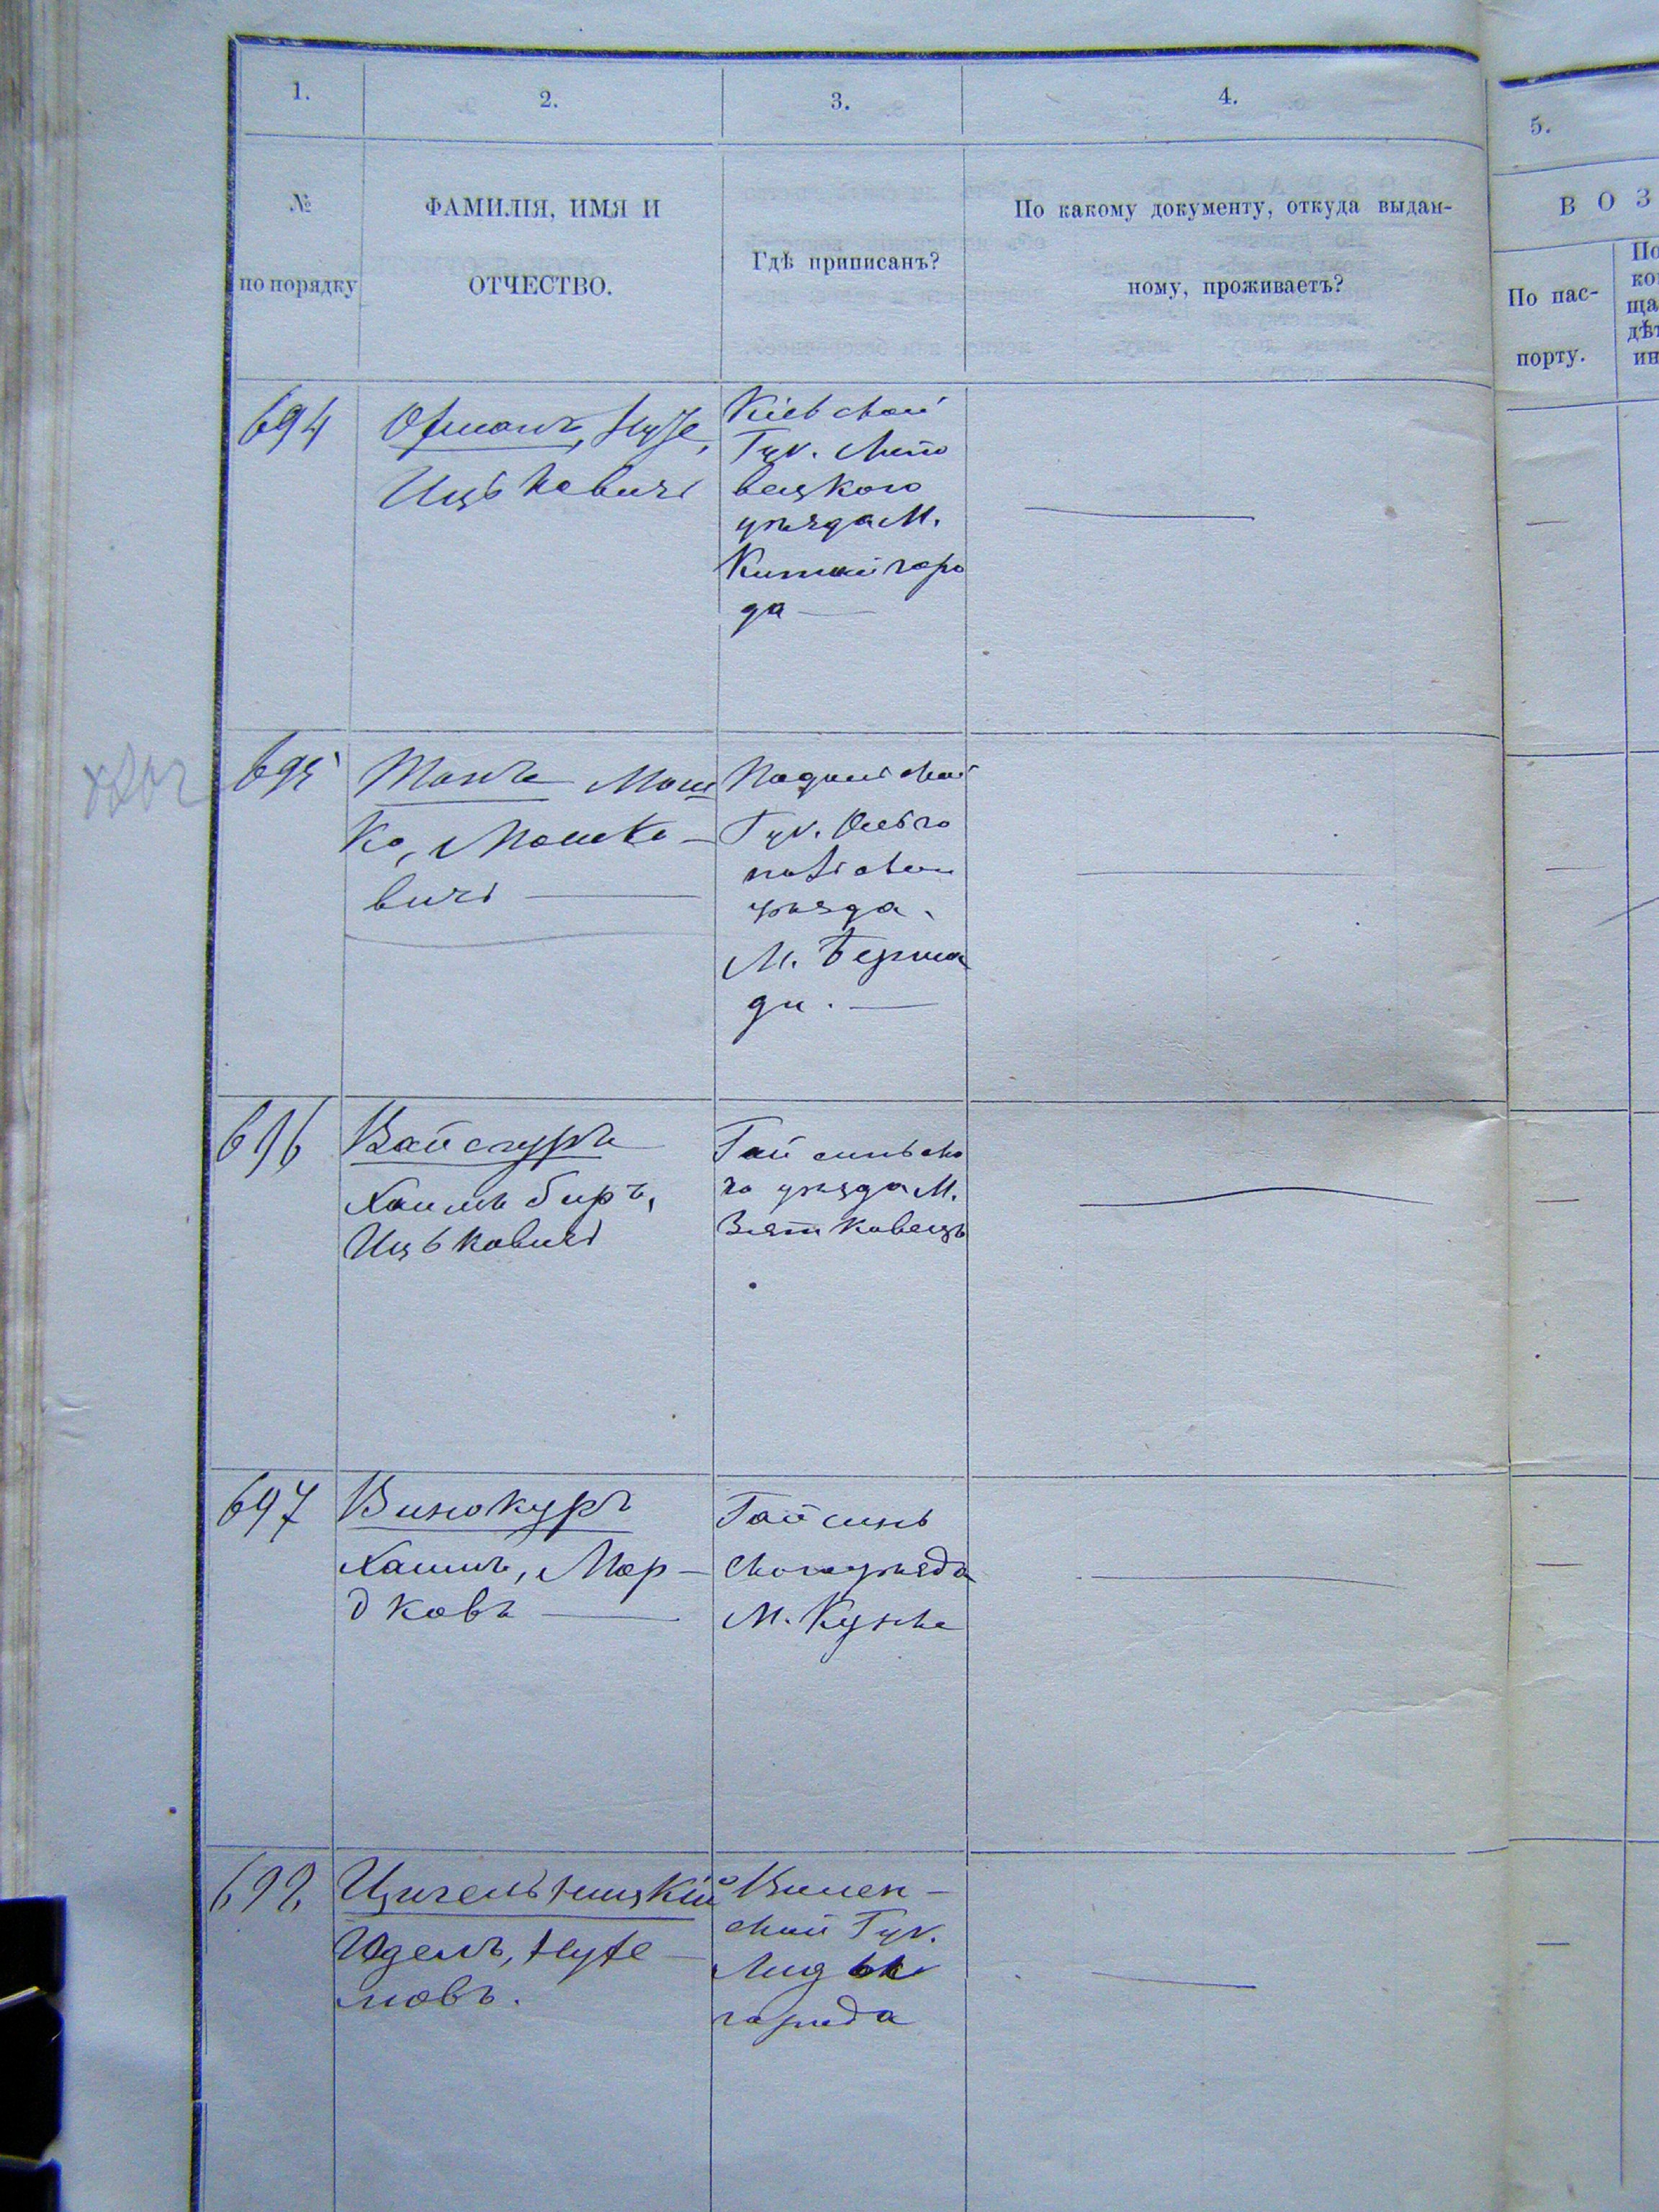 1.
2.
3.
4.
5.
№
по порядку
ФАМИЛІЯ, ИМЯ И
ОТЧЕСТВО.
Гдѣ приписанъ?
По какому документу, откуда выдан-
ному, проживаетъ?
В О З
По пас-
порту.
694
Ицьковичъ
Кіевской
Губ. Липо
вецкого
уѣзда М.
Китайгоро
да —
695
Мош
ко, Мошко-
вичъ —
Подольской
Губ. Ольго
польского
уѣзда.
М. Берша
ди. —
696
Вайсгуръ
Хаимъ Беръ,
Ицьковичъ
Гайсиньско
го уѣзда М.
Зятковецъ
697
Винокуръ
Хаимъ, Мор-
дковъ —
Гайсинь
ского уѣзда
М. Кунка
698
Цигельницкій
Идель,
Вилен-
ской Губ.
Лиды
города